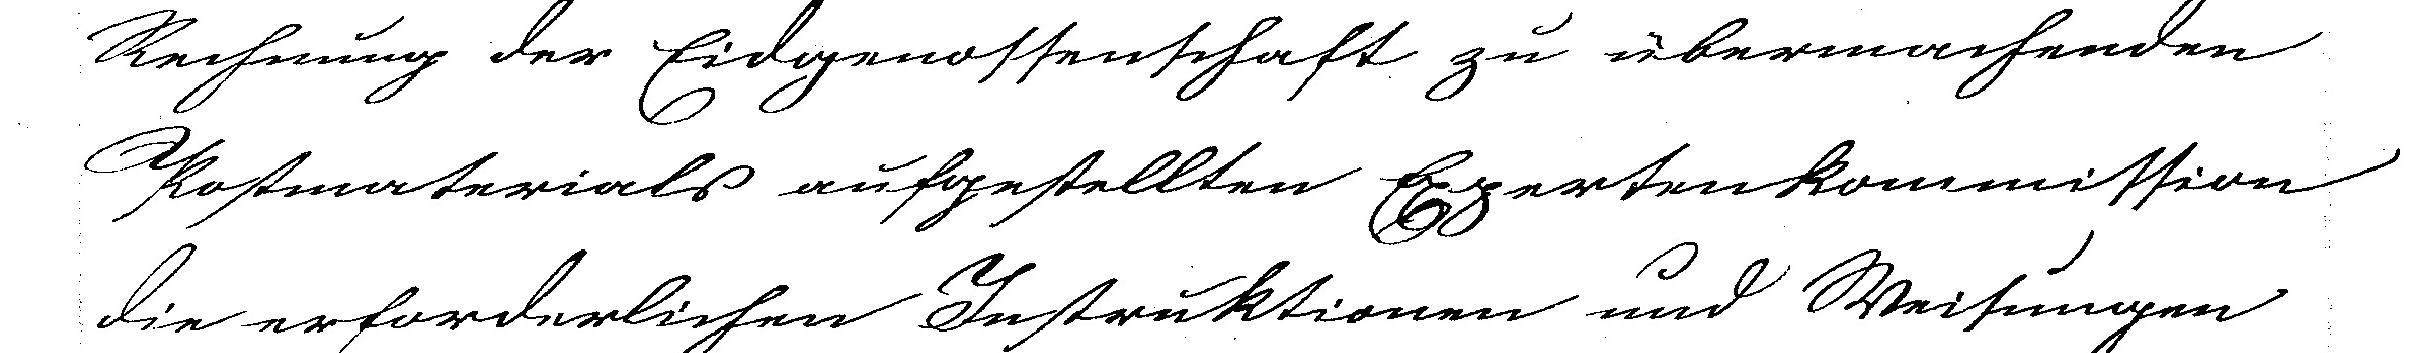 Rechnung der Eidgenossenschaft zu übermachenden
Postmaterials aufgestellten Expertenkommission
die erforderlichen Instruktionen und Weisungen